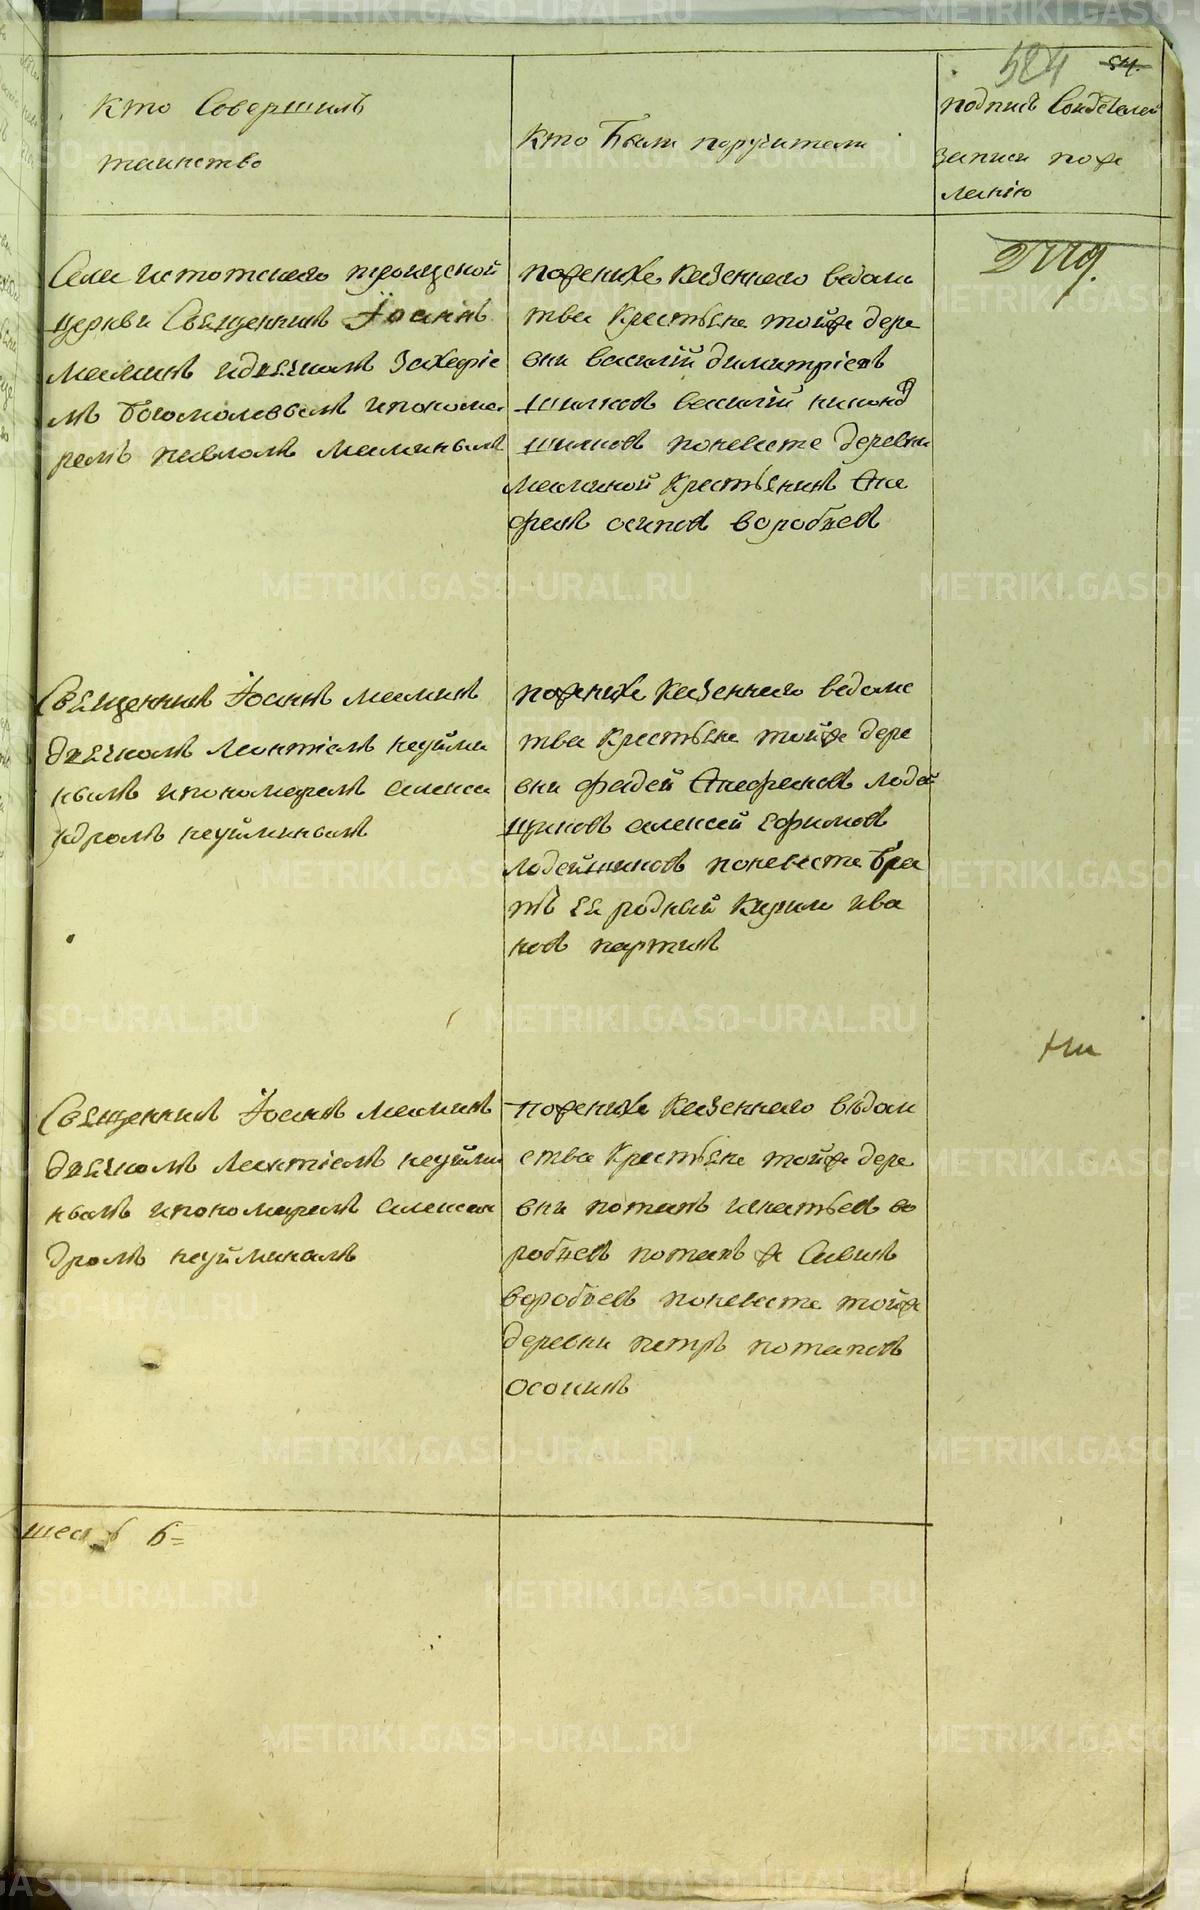 524 54.
Кто Совершилъ
таинство
Кто Были поручители
подписъ Свидѣтелей
записи поже
ланію
Села истотскаго троицкой
церкви Священникъ Іоаннъ
маминъ идьячкомъ Захаріе
мъ Богомоловымъ ипонома
ремъ павломъ маминымъ
поженихе казеннаго ведомъ
тва Крестьяне тойже дере
вни василій димитріевъ
шилковъ василій никоно
шилковъ поневесте деревни
маминой Крестьянинъ
осиповъ воробьевъ
Священникъ Іоаннъ маминъ
дьячкомъ леонтіемъ неуйми
нымъ ипономаремъ алекса
ндромъ неуйминымъ
поженихе казеннаго ведомс
тва Крестьяне тойже дере
вни фадей лодей
щиковъ алексей ефимовъ
лодейщиковъ поневесте бра
тъ ея родный Кирило ива
новъ партинъ
Священникъ Іоаннъ маминъ
дьячкомъ леонтіемъ неуйми
нымъ ипономаремъ алексан
дромъ неуйминымъ
поженихе казеннаго вѣдом
ства Крестьяне тойже дере
вни потапъ игнатьевъ во
робьевъ потапъ же Савинъ
воробьевъ поневесте тойже
деревни петръ потаповъ
осонинъ
шесть 6=
METRIKI.GASO-URAL.RU